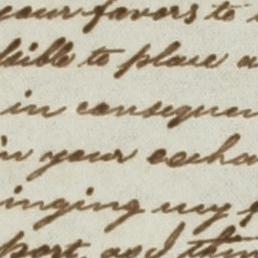 your favors to
sible to place a
in consequen
in your excha
inging my
port, and